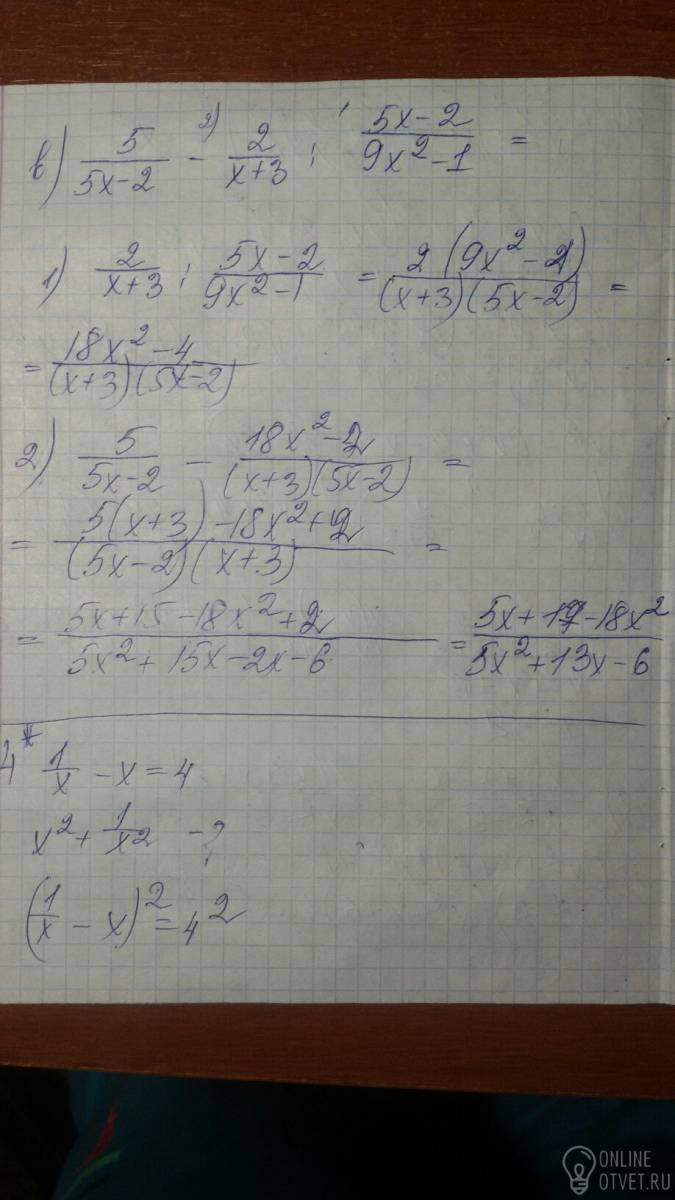 в) 5/(5x-2) - 2/(x+3) : (5x-2)/(9x²-1) =
1) 2/(x+3) : (5x-2)/(9x²-1) = 2(9x²-1)/((x+3)(5x-2)) =
= (18x²-4)/((x+3)(5x-2))
2) 5/(5x-2) - (18x²-2)/((x+3)(5x-2)) =
= (5(x+3)-18x²+2)/((5x-2)(x+3)) =
= (5x+15-18x²+2)/(5x²+15x-2x-6) = (5x+17-18x²)/(5x²+13x-6)
4* 1/x - x = 4
x² + 1/x² - ?
(1/x - x)² = 4²
ONLINE
OTVET.RU